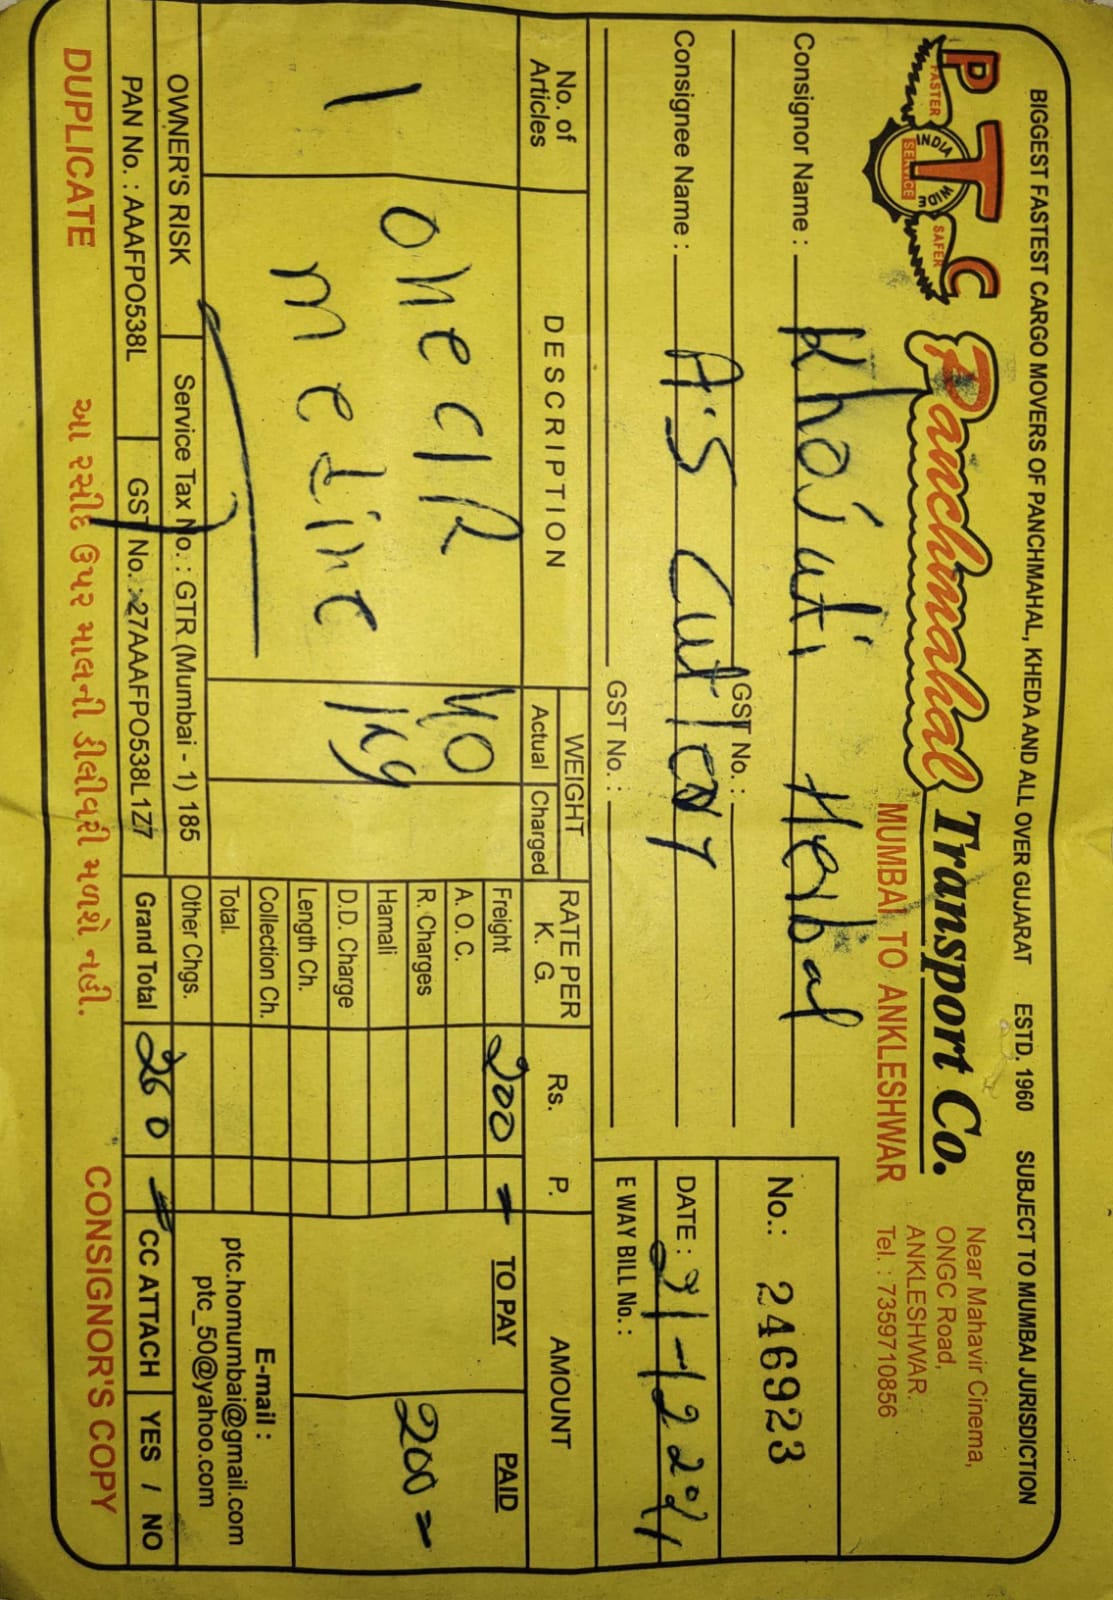 BIGGEST FASTEST CARGO MOVERS OF PANCHMAHAL, KHEDA AND ALL OVER GUJARAT ESTD. 1960 SUBJECT TO MUMBAI JURISDICTION
PTC
FASTER INDIA WIDE SERVICE SAFER
Panchmahal Transport Co.
MUMBAI TO ANKLESHWAR
Near Mahavir Cinema,
ONGC Road,
ANKLESHWAR.
Tel. : 7359710856
Consignor Name : Khojati Herbal
GST No. :
Consignee Name : A.S Cutlery
GST No. :
No.: 246923
DATE : 21-12 2021
E WAY BILL No. :
No. of Articles DESCRIPTION WEIGHT Actual Charged RATE PER K. G. Rs. P. AMOUNT
TO PAY PAID
1 One
40 Kg
Freight 200 =
200 =
A. O. C.
R. Charges
Hamali
D.D. Charge
Length Ch.
Collection Ch.
Total.
Other Chgs.
Grand Total 260 =
E-mail :
ptc.homumbai@gmail.com
ptc_50@yahoo.com
OWNER'S RISK Service Tax No. : GTR (Mumbai - 1) 185
PAN No. : AAAFPO538L GST No. : 27AAAFPO538L1Z7
CC ATTACH YES / NO
DUPLICATE આ રસીદ ઉપર માલની ડીલીવરી મળશે નહી. CONSIGNOR'S COPY